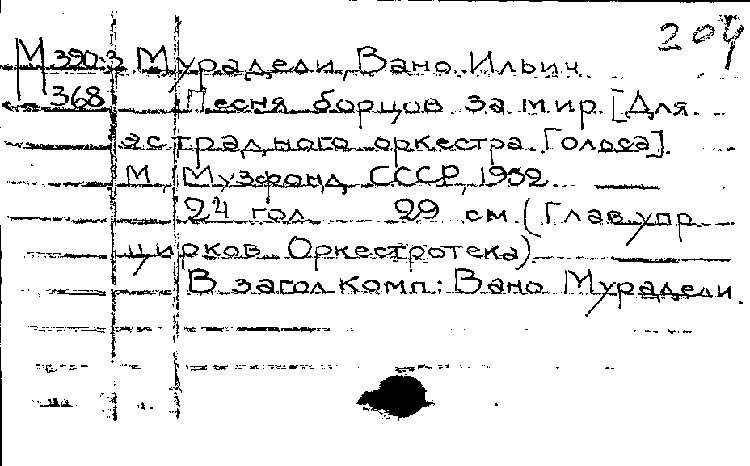 204
М 390-3 Мурадели, Вано Ильич
М 368 Песня борцов за мир. [Для
эстрадного оркестра. Голоса].
М., Музфонд СССР, 1952.
24 гол. 29 см. (Глав. упр.
цирков. Оркестротека)
В загол. комп.: Вано Мурадели.